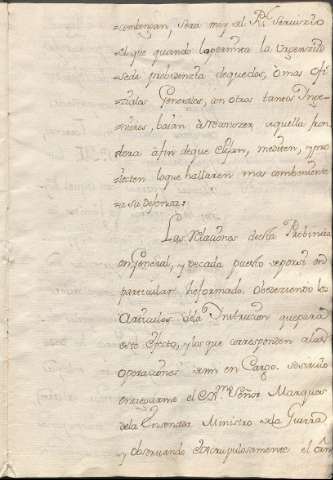 contengan, sera muy del Rl. Servicio
el que quando lo permita la Urgencia
sede probidencia deque dos, ò mas ofi-
ziales Generales, con otros tantos Inge-
nieros, baian à reconozer aquella fron-
tera à fin de que elijan, mediten, y pro-
iecten loque hallaren mas combeniente
a su defensa:
Las Relaciones desta Probincia
en General, y decada puesto depor si en
particular he formado. Obedeciendo los
Articulos dela Instrucion que para
este efecto, y los que corresponden a las
operaciones demi Cargo. se sirvio
entregarme el Ex.mo Señor Marques
dela Ensenada Ministro dela Guerra
y observando escrupulosamente el